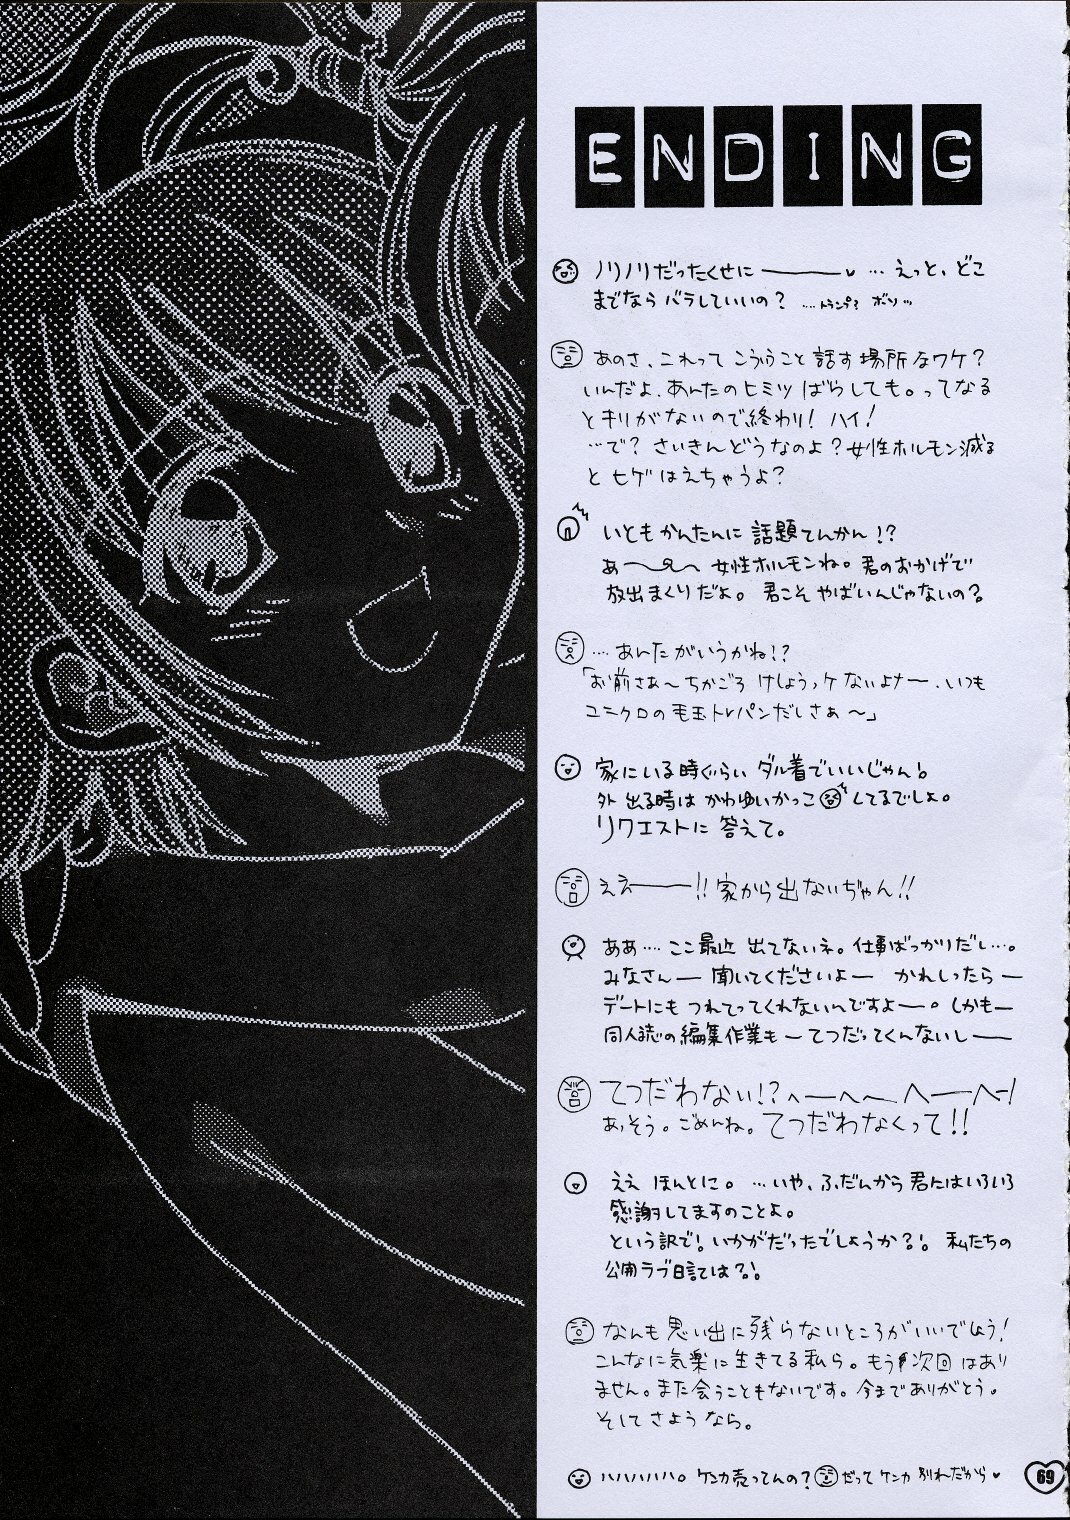 ENDING
ノリノリだったくせに――――♥ … えっと、どこ
までなら バラしていいの? ....トランプ? ボソッ
あのさ、これって こういうこと 話す 場所なワケ?
いんだよ、あんたのヒミツ ばらしても。ってなる
とキリがないので終わり! ハイ!
…で? さいきんどうなのよ?女性ホルモン減る
と ヒゲはえちゃうよ?
いとも かんたんに 話題てんかん!?
あ〜〜 女性ホルモンね。君のおかげで
放出まくりだよ。 君こそ やばいんじゃないの?
… あんたがいうかね!?
「お前さぁ〜 ちかごろ けしょうッケ ないよナー、いつも
ユニクロの毛玉トレパンだしさぁ〜」
家にいる時ぐらい ダル着でいいじゃん!
外 出る時は かわゆいかっこ してるでしょ。
リクエストに 答えて。
ええ―――!! 家から出ないぢゃん!!
ああ…. ここ最近 出てないネ。仕事ばっかりだし…。
みなさん― 聞いてくださいよ― かれしったら―
デートにも つれてってくれないんですよ―。しかも―
同人誌の 編集作業も ― てつだってくんないし――
てつだわない!? へ―へ〜 へ―へ―!
あっそう。ごめんね。てつだわなくって!!
ええ ほんとに。 …いや、ふだんから 君にはいろいろ
感謝してますのことよ。
という訳で! いかがだったでしょうか?! 私たちの
公開ラブ日記は?!
なんも 思い出に 残らないところがいいでしょう!
こんなに気楽に生きてる私ら。もう次回はあり
ません。また会うこともないです。今までありがとう。
そして さようなら。
ハハハハハハハ。ケンカ売ってんの? だって ケンカ 別れだから♥
69